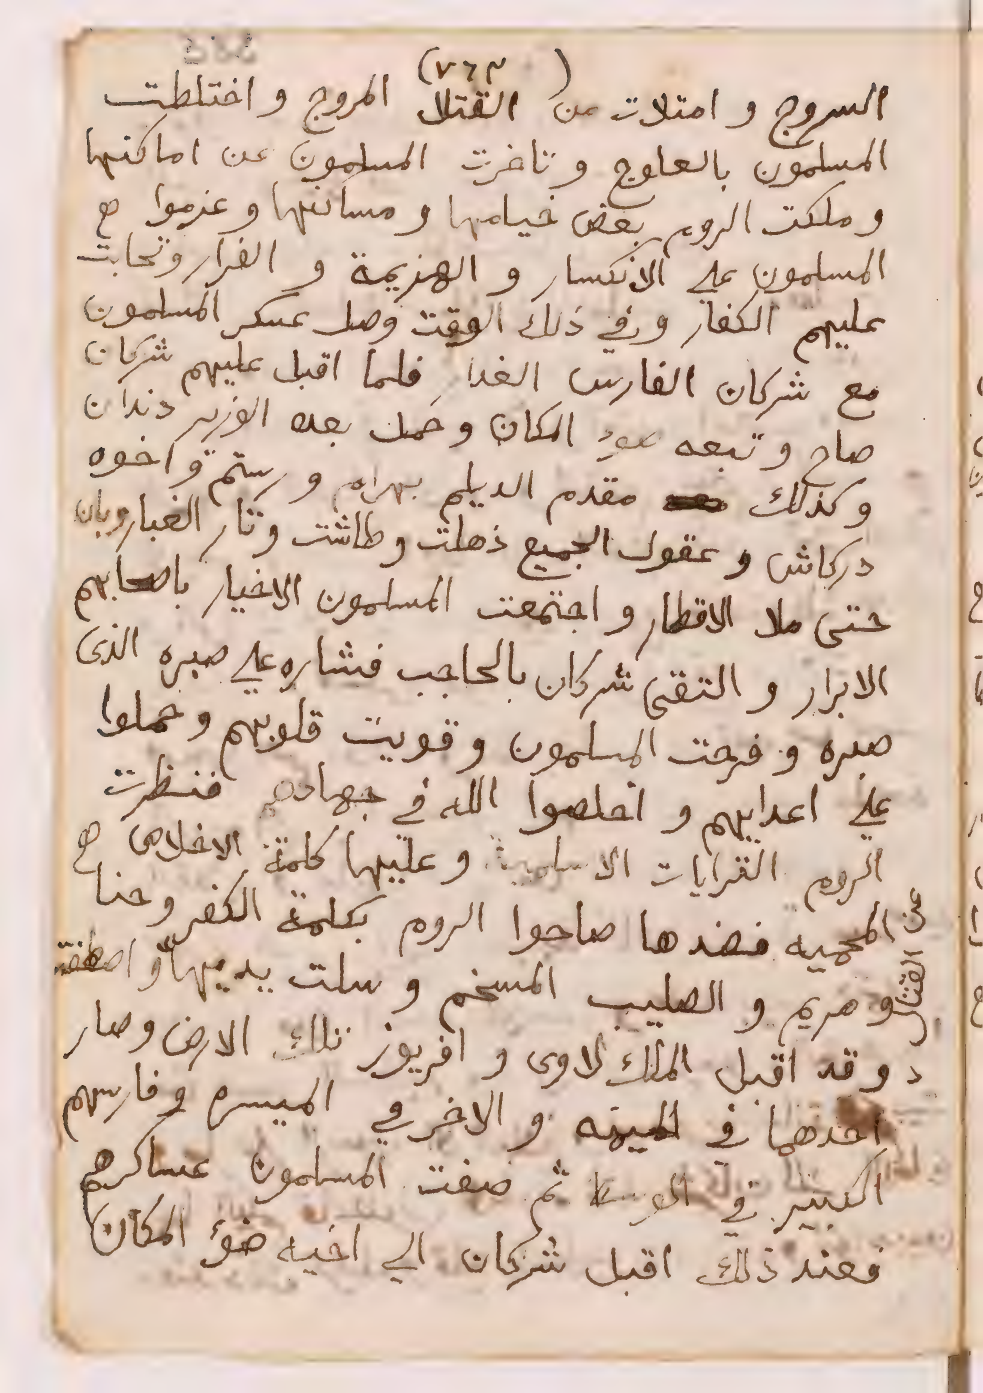 (٧٦٣)
السروج و امتلات من القتلا المروج و اختلطت
المسلمون بالعلوج و تاخرت المسلمون عن اماكنها
و ملكت الروم بعض خيامها و مساكنها و عزموا
المسلمون علي الانكسار و الهزيمة و الفرار و
عليهم الكفار و في ذلك الوقت وصل عسكر المسلمون
مع شركان الفارس الغدا فلما اقبل عليهم شركان
صاح و تبعه ضوء المكان و حمل بعده الوزير دندان
و كذلك مقدم الديلم بهرام و رستم و اخوه
دركاش و عقول الجميع ذهلت و طاشت و ثار الغبار وبان
حتى ملا الاقطار و اجتمعت المسلمون الاخيار باصحابهم
الابرار و التقى شركان بالحاجب فشاره علي صبره الذى
صبره و فرحت المسلمون و قويت قلوبهم و حملوا
علي اعدايهم و اخلصوا الله في جهادهم فنظرت
الروم القرايات الاسلامية و عليها كلمة الاخلاص
المحميه فضدها صاحوا الروم بكلمة الكفر و حنا
و مريم و الصليب المسخم و سلت يديها و
عن القتال
د و قد اقبل الملك لاوى و افريوز تلك الارض و صار
احدهما في الميمنه و الاخر في الميسره و فارسهم
الكبير في الوسط ثم صفت المسلمون عساكرهم
فعند ذلك اقبل شركان الي اخيه ضؤ المكان